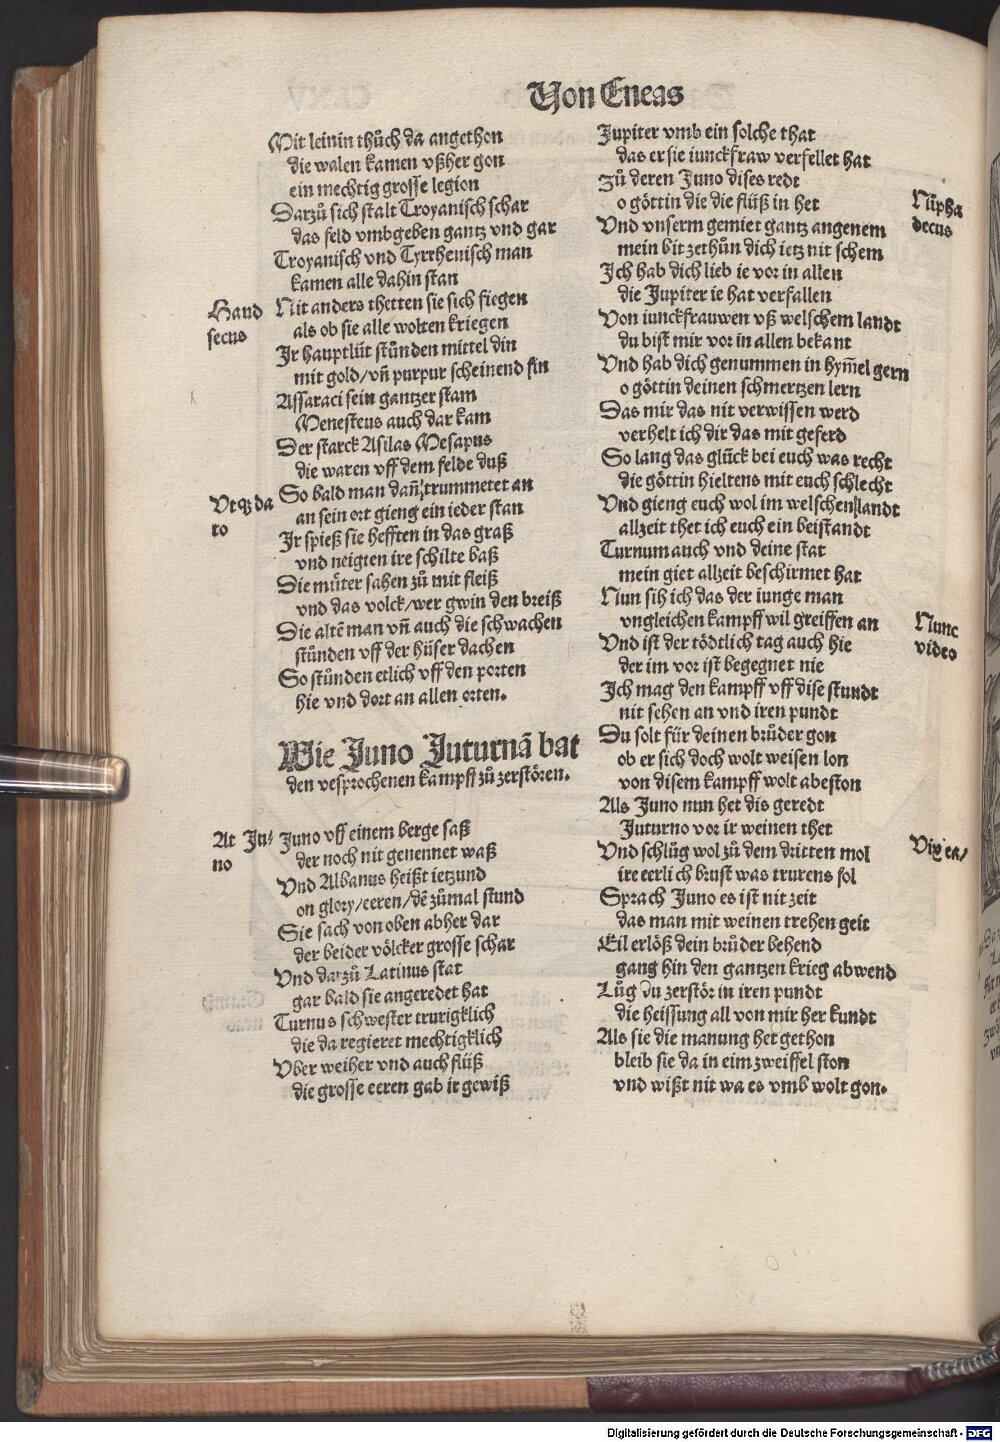 Von Eneas
Mit leinin thuͤch da angethon
die walen kamen vßher gon
ein mechtig grosse legion
Darzuͦ sich stalt Troyanisch schar
das feld vmbgeben gantz vnd gar
Troyanisch vnd Tyrrhenisch man
kamen alle dahin stan
Haud
secus
Nit anders thetten sie sich fiegen
als ob sie alle wolten kriegen
Jr hauptluͤt stuͦnden mittel din
mit gold/vñ purpur scheinend fin
Assaraci sein gantzer stam
Menesteus auch dar kam
Der starck Asilas Mesapus
die waren vff dem felde duß
Vtqꝫ da
to
So bald man dañ trummetet an
an sein ort gieng ein ieder stan
Jr spieß sie hefften in das graß
vnd neigten ire schilte baß
Die muͤter sahen zuͦ mit fleiß
vnd das volck/wer gwin den breiß
Die altẽ man vñ auch die schwachen
stuͦnden vff der huͤser dachen
So stuͦnden etlich vff den porten
hie vnd dort an allen orten.
Wie Juno Juturnã bat
den vesprochenen kampff zuͦ zerstoͤren.
At Ju⸗
no
Juno vff einem berge saß
der noch nit genennet waß
Vnd Albanus heißt ietzund
on glory/eeren/dẽ zuͦmal stund
Sie sach von oben abher dar
der beider voͤlcker grosse schar
Vnd darzuͦ Latinus stat
gar bald sie angeredet hat
Turnus schwester trurigklich
die da regieret mechtigklich
Vber weiher vnd auch fluͤß
die grosse eeren gab ir gewiß
Jupiter vmb ein solche that
das er sie iunckfraw verfellet hat
Zuͦ deren Juno dises redt
o goͤttin die die fluͤß in het
Nuͤpha
decus
Vnd vnserm gemiet gantz angenem
mein bit zethuͦn dich ietz nit schem
Jch hab dich lieb ie vor in allen
die Jupiter ie hat verfallen
Von iunckfrauwen vß welschem landt
du bist mir vor in allen bekant
Vnd hab dich genummen in hym̃el gern
o goͤttin deinen schmertzen lern
Das mir das nit verwissen werd
verhelt ich dir das mit geferd
So lang das gluͤck bei euch was recht
die goͤttin hieltens mit euch schlecht
Vnd gieng euch wol im welschen landt
allzeit thet ich euch ein beistandt
Turnum auch vnd deine stat
mein giet allzeit beschirmet hat
Nun sih ich das der iunge man
vngleichen kampff wil greiffen an
Nunc
video
Vnd ist der toͤdtlich tag auch hie
der im vor ist begegnet nie
Jch mag den kampff vff dise stundt
nit sehen an vnd iren pundt
Du solt fuͤr deinen bruͦder gon
ob er sich doch wolt weisen lon
von disem kampff wolt abeston
Als Juno nun het dis geredt
Juturno vor ir weinen thet
Vix ea/
Vnd schluͦg wol zuͦ dem dritten mol
ire eerlich brust was trurens fol
Sprach Juno es ist nit zeit
das man mit weinen trehen geit
Eil erloͤß dein bruͦder behend
gang hin den gantzen krieg abwend
Luͦg du zerstoͤr in iren pundt
die heissung all von mir her kundt
Als sie die manung het gethon
bleib sie da in eim zweiffel ston
vnd wißt nit wa es vmb wolt gon.
Digitalisierung gefördert durch die Deutsche Forschungsgemeinschaft - DFG